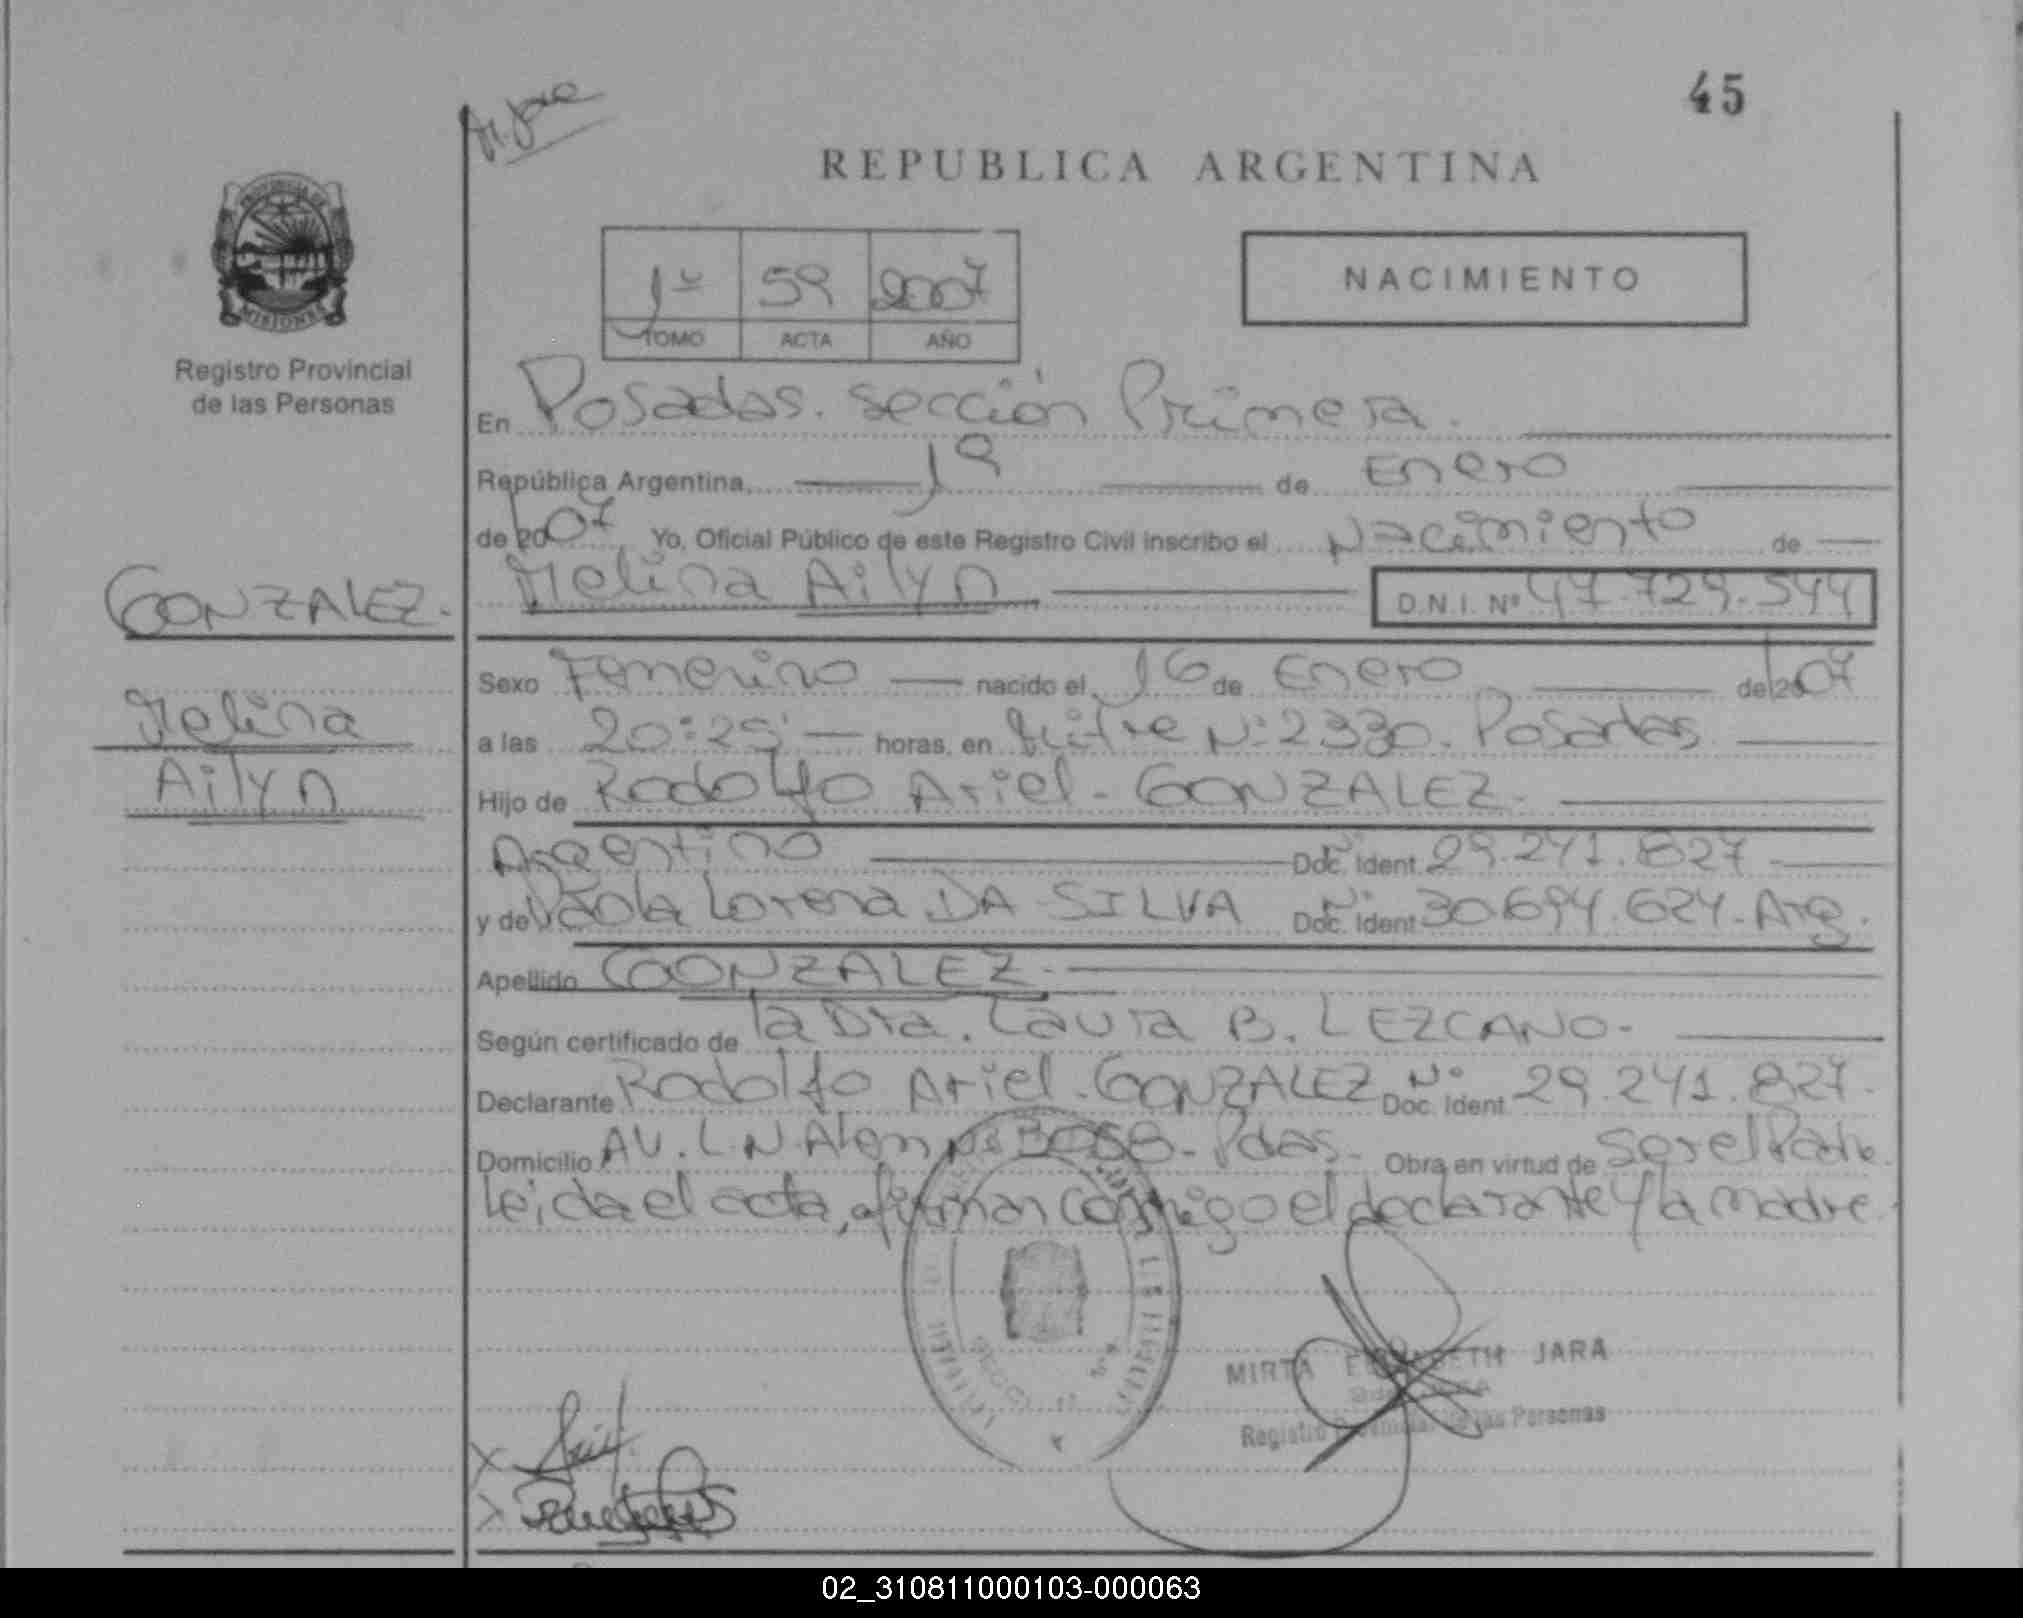 45
M. Jose
REPUBLICA ARGENTINA
PROVINCIA DE
MISIONES
Registro Provincial
de las Personas
1º 59 2007
TOMO ACTA AÑO
NACIMIENTO
En Posadas. sección Primera.
República Argentina, 19 de Enero
de 2007 Yo, Oficial Público de este Registro Civil inscribo el Nacimiento de
Melina Ailyn D.N.I. Nº 47.729.544
GONZALEZ.
Melina
Ailyn
Sexo Femenino nacido el 16 de Enero de 2007
a las 20:25' horas, en Mitre Nº 2330. Posadas
Hijo de Rodolfo Ariel - GONZALEZ.
Argentino Doc. Ident. Nº 29.241.827
y de Paola Lorena DA SILVA Doc. Ident. Nº 30.694.624 - Arg.
Apellido GONZALEZ.
Según certificado de la Dra. Laura B. LEZCANO.
Declarante Rodolfo Ariel - GONZALEZ Doc. Ident. Nº 29.241.827.
Domicilio AV. L.N. Alem Nº 3058 - Pdas. Obra en virtud de ser el Padre.
Leida el acta, firman conmigo el declarante y la madre.
MIRTA ELIZABETH JARA
Registro Provincial de las Personas
02_310811000103-000063